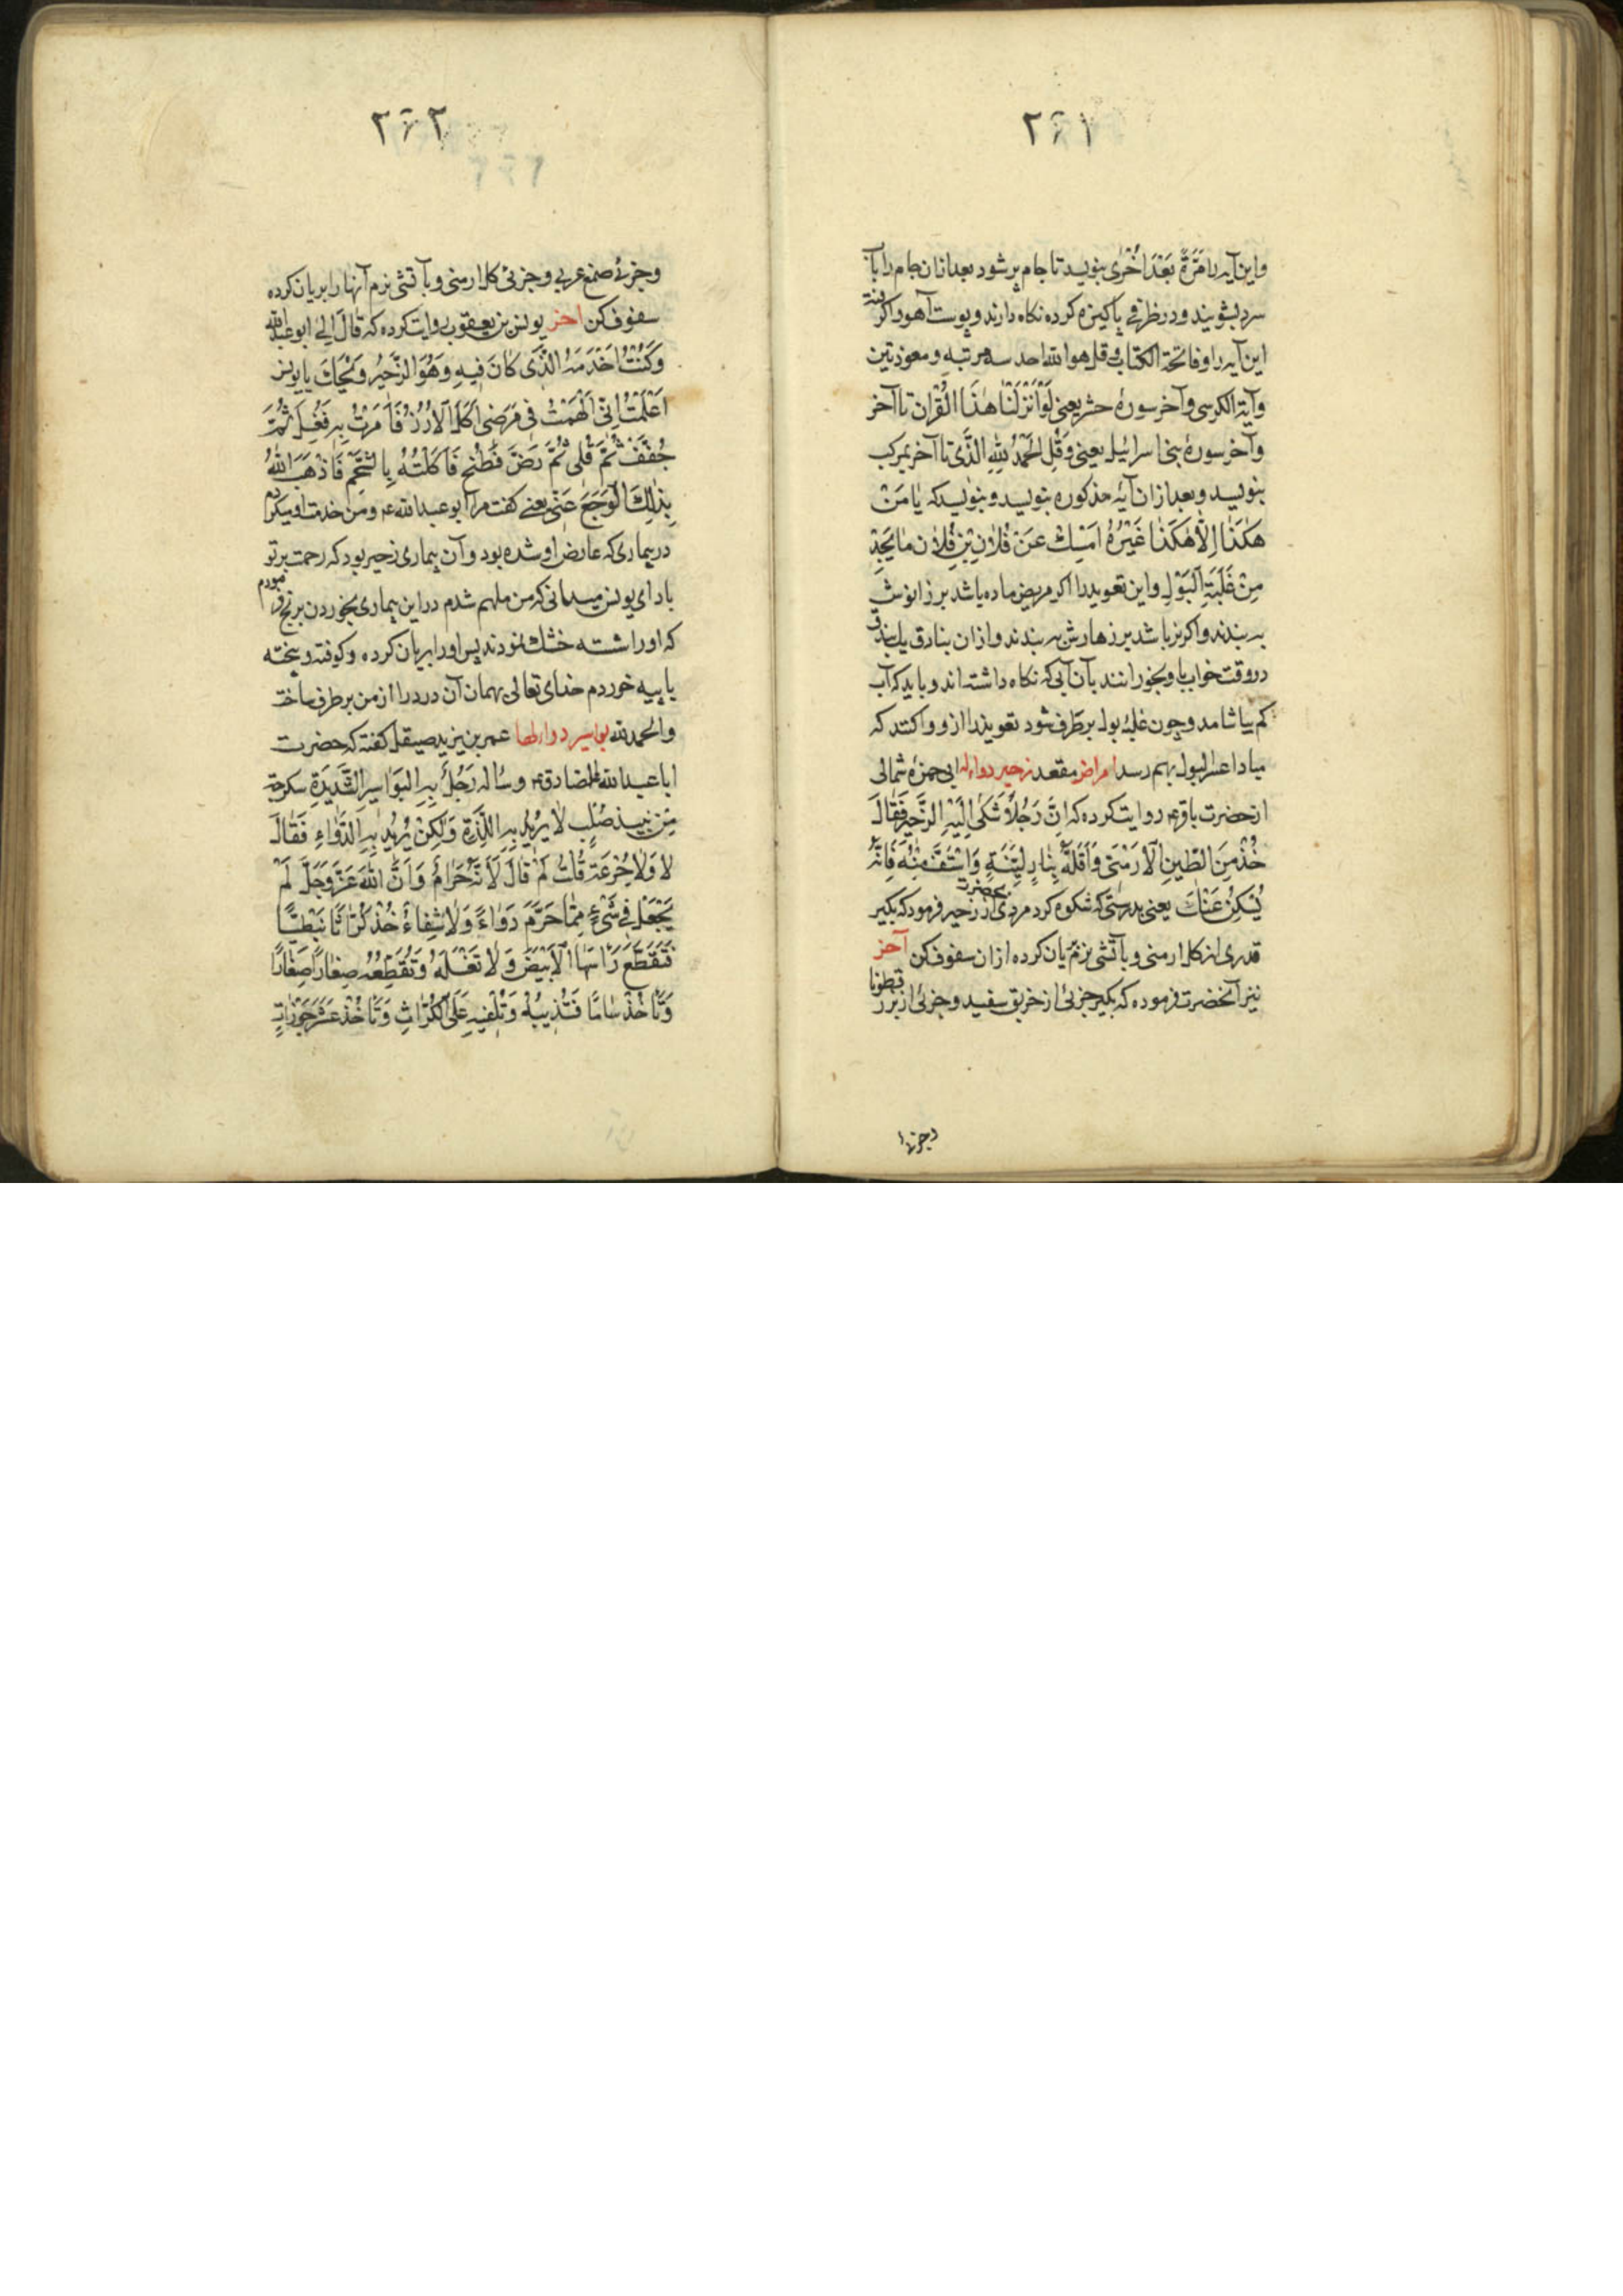 ۲۶۱
واین آیه را مَرَّةً بَعْدَ اُخْرٰی بنویسد تا جام پر شود بعد از ان جام را بآب
سرد بشویند و در ظرفی پاکیزه کرده نکاه دارند و پوست آهو را کرفته
این آیه را و فاتحة الکتاب و قل هو الله احد سه مرتبه و معوذتین
و آیة الکرسی و آخر سورهٔ حشر یعنی لَوْ اَنْزَلْنٰا هٰذَا الْقُرْآن تا آخر
و آخر سورهٔ بنی اسرائیل یعنی وَقُلِ الْحَمْدُ لِلّٰهِ الَّذی تا آخر بمرکب
بنویسد و بعد از ان آیه مذکوره بنویسد و بنویسد که یٰا مَنْ
هٰکَذٰا اِلّٰا هٰکَذٰا غَیْرُهُ اَمْسِكْ عَنْ فُلٰانِ بْنِ فُلٰان مٰا یَجِدُ
مِنْ غَلَبَةِ الْبَوْلِ و این تعویذ را اکر مریض ماده باشد بر زانوش
به بندند و اکر نر باشد بر زهارش به بندند و از ان بنادق یك بندق
در وقت خواب باو بخورانند بآن آبی که نکاه داشته اند و باید که آب
کم بیاشامد و چون غلبهٔ بول برطرف شود تعویذ را از و واکنند که
مبادا عسر البول بهم رسد امراض مقعد زحیر دواء له ابی حمزه ثمالی
از حضرت باقر ۴ روایت کرده که اِنَّ رَجُلاً شَکیٰ اِلَیْهِ الزَّحیرَ فَقٰالَ
خُذْ مِنَ الطّینِ الْاَرْمَنیِّ وَ اَقْلِهِ بِنٰارٍ لَیِّنَةٍ وَ اسْتَفَّ مِنْهُ فَاِنَّهُ
یُسَکِّنُ عَنْكَ یعنی بدرستی که شکوه کرد مردی بحضرت از زحیر فرمود که بکیر
قدری از کل ارمنی و بآتشی نرم بریان کرده از ان سفوف کن آخر
نیز آنحضرت فرموده که بکیر جزئی از خربق سفید و جزئی از بزر قطونا
وجزئی
۲۶۲
وجزئی صمغ عربی و جزئی کل ارمنی و بآتشی نرم آنها را بریان کرده
سفوف کن آخر یونس بن یعقوب روایت کرده که قٰالَ لی ابو عبدالله
وَ کُنْتُ اَخْدَمُهُ الَّذی کٰانَ فیهِ وَ هُوَ الزَّحیرُ وَیْحَكَ یا یونس
اَعَلِمْتَ اِنّی اُلْهِمْتُ فی مَرَضی اَکْلَ الْاَرُزِّ فَاَمَرْتُ بِهِ فَغُسِلَ ثُمَّ
جُفِّفَ ثُمَّ قُلِیَ ثُمَّ رُضَّ فَطُبِخَ فَاَکَلْتُهُ بِالشَّحْمِ فَاَذْهَبَ اللّٰهُ
بِذٰلِكَ الْوَجَعَ عَنّی یعنی کفت مرا ابو عبدالله ۴ و من خدمت او میکردم
در بیماری که عارض او شده بود و آن بیماری زحیر بود که رحمت بر تو
باد ای یونس میدانی که من ملهم شدم در این بیماری بخوردن برنج فرمودم
که او را شسته خشك نمودند پس او را بریان کرده و کوفته و پخته
با پیه خوردم خدای تعالی بهمان آن درد را از من برطرف ساخت
والحمدلله بواسیر دواء لها عمر بن یزید صیقل کفته که حضرت
ابا عبدالله الصادق ۴ و سأله رَجُلٌ بِهِ الْبَوٰاسیرُ الشَّدیدَةِ سکرجة
مِنْ نَبیذ صُلْبٍ لٰا یُریدُ بِهِ اللَّذَّةَ وَلٰکِنْ یُریدُ بِهِ الدَّوٰاءِ فَقٰالَ
لٰا وَلٰا جُرْعَة قُلْتُ لِمَ قٰالَ لِاَنَّهُ حَرٰامٌ وَ اَنَّ اللّٰهَ عَزَّ وَجَلَّ لَمْ
یَجْعَلْ فی شَیْءٍ مِمّٰا حَرَّمَ دَوٰاءً وَلٰا شِفٰاءً خُذْ کُرّٰاثًا نَبَطِیًّا
فَتَقْطَعَ رَاْسَهَا الْاَبْیَضَ وَ لٰا تَغْسِلْهُ وَ تُقَطِّعُهُ صِغٰارًا صِغٰارًا
وَ تَاْخُذُ سَنٰامًا فَتُذیبُهُ وَ تُلْقیهِ عَلَی الْکُرّٰاثِ وَ تَاْخُذُ عَشَرَ جَوْزٰاتٍ